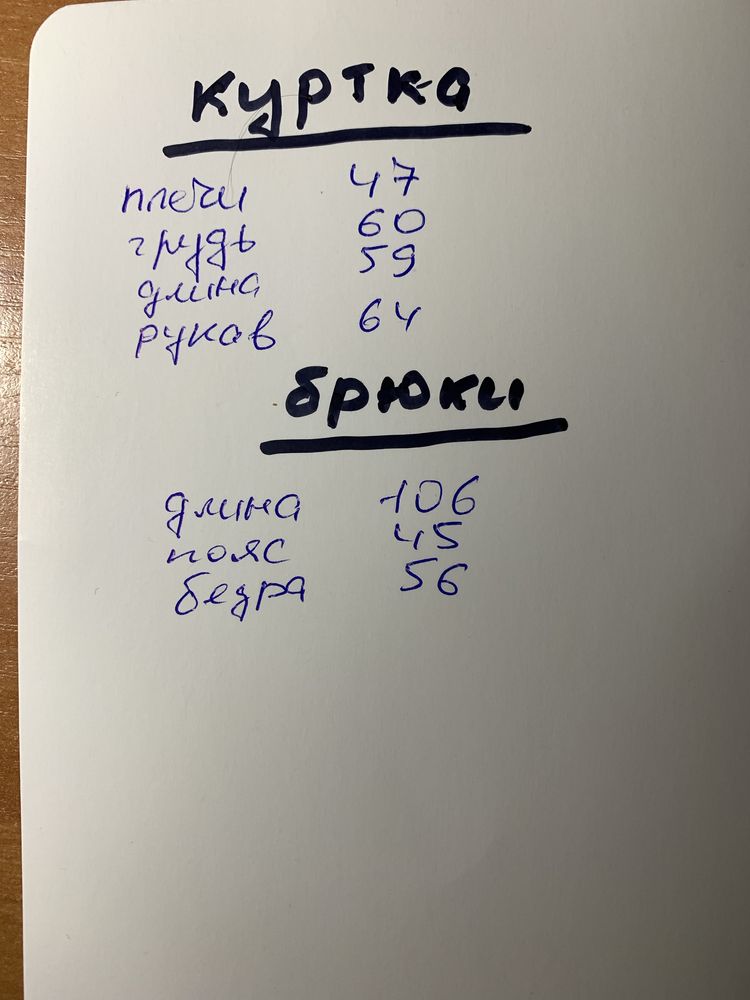 куртка
плечи 47
грудь 60
длина 59
рукав 64
брюки
длина 106
пояс 45
бедра 56